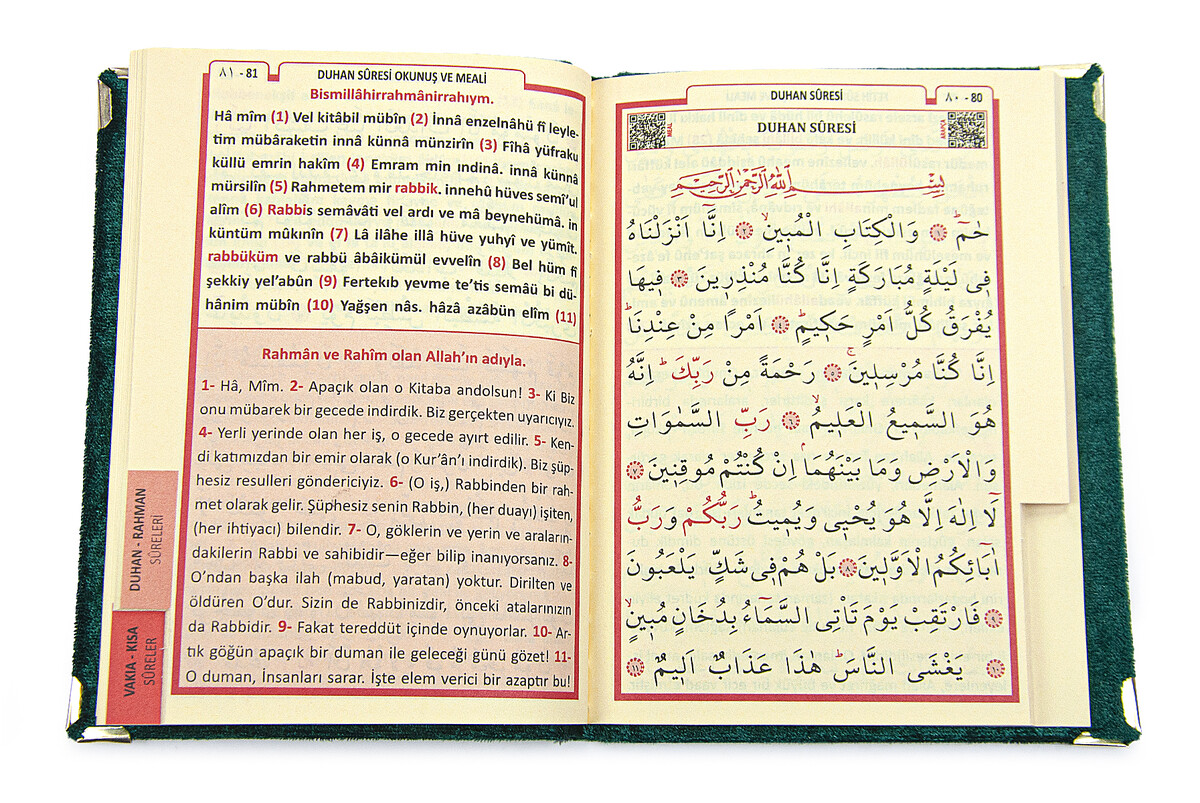 ٨١ - 81
DUHAN SÛRESİ OKUNUŞ VE MEALİ
Bismillâhirrahmânirrahıym.
Hâ mîm (1) Vel kitâbil mübîn (2) İnnâ enzelnâhü fî leyle-
tim mübâraketin innâ künnâ münzirîn (3) Fîhâ yüfraku
küllü emrin hakîm (4) Emram min ındinâ. innâ künnâ
mürsilîn (5) Rahmetem mir rabbik. innehû hüves semî'ul
alîm (6) Rabbis semâvâti vel ardı ve mâ beynehümâ. in
küntüm mûkınîn (7) Lâ ilâhe illâ hüve yuhyî ve yümît.
rabbüküm ve rabbü âbâikümül evvelîn (8) Bel hüm fî
şekkiy yel'abûn (9) Fertekıb yevme te'tis semâü bi dü-
hânim mübîn (10) Yağşen nâs. hâzâ azâbün elîm (11)
Rahmân ve Rahîm olan Allah'ın adıyla.
1- Hâ, Mîm. 2- Apaçık olan o Kitaba andolsun! 3- Ki Biz
onu mübarek bir gecede indirdik. Biz gerçekten uyarıcıyız.
4- Yerli yerinde olan her iş, o gecede ayırt edilir. 5- Ken-
di katımızdan bir emir olarak (o Kur'ân'ı indirdik). Biz şüp-
hesiz resulleri göndericiyiz. 6- (O iş,) Rabbinden bir rah-
met olarak gelir. Şüphesiz senin Rabbin, (her duayı) işiten,
(her ihtiyacı) bilendir. 7- O, göklerin ve yerin ve araların-
dakilerin Rabbi ve sahibidir—eğer bilip inanıyorsanız. 8-
O'ndan başka ilah (mabud, yaratan) yoktur. Dirilten ve
öldüren O'dur. Sizin de Rabbinizdir, önceki atalarınızın
da Rabbidir. 9- Fakat tereddüt içinde oynuyorlar. 10- Ar-
tık göğün apaçık bir duman ile geleceği günü gözet! 11-
O duman, İnsanları sarar. İşte elem verici bir azaptır bu!
DUHAN - RAHMAN
SÛRELERİ
VAKIA - KISA
SÛRELER
DUHAN SÛRESİ
٨٠ - 80
MEAL
DUHAN SÛRESİ
ARAPÇA
بِسْمِ اللّٰهِ الرَّحْمٰنِ الرَّحِيمِ
حٰمٓ ۚ ﴿١﴾ وَالْكِتَابِ الْمُبِينِۙ ﴿٢﴾ اِنَّٓا اَنْزَلْنَاهُ
فِى لَيْلَةٍ مُبَارَكَةٍ اِنَّا كُنَّا مُنْذِرِينَ ﴿٣﴾ فِيهَا
يُفْرَقُ كُلُّ اَمْرٍ حَكِيمٍۙ ﴿٤﴾ اَمْرًا مِنْ عِنْدِنَاۜ
اِنَّا كُنَّا مُرْسِلِينَۚ ﴿٥﴾ رَحْمَةً مِنْ رَبِّكَۜ اِنَّهُ
هُوَ السَّمِيعُ الْعَلِيمُۙ ﴿٦﴾ رَبِّ السَّمٰوَاتِ
وَالْاَرْضِ وَمَا بَيْنَهُمَاۢ اِنْ كُنْتُمْ مُوقِنِينَ ﴿٧﴾
لَٓا اِلٰهَ اِلَّا هُوَ يُحْيِى وَيُمِيتُۜ رَبُّكُمْ وَرَبُّ
اٰبَٓائِكُمُ الْاَوَّلِينَ ﴿٨﴾ بَلْ هُمْ فِى شَكٍّ يَلْعَبُونَ
﴿٩﴾ فَارْتَقِبْ يَوْمَ تَأْتِى السَّمَٓاءُ بِدُخَانٍ مُبِينٍۙ
﴿١٠﴾ يَغْشَى النَّاسَۜ هٰذَا عَذَابٌ اَلِيمٌ ﴿١١﴾